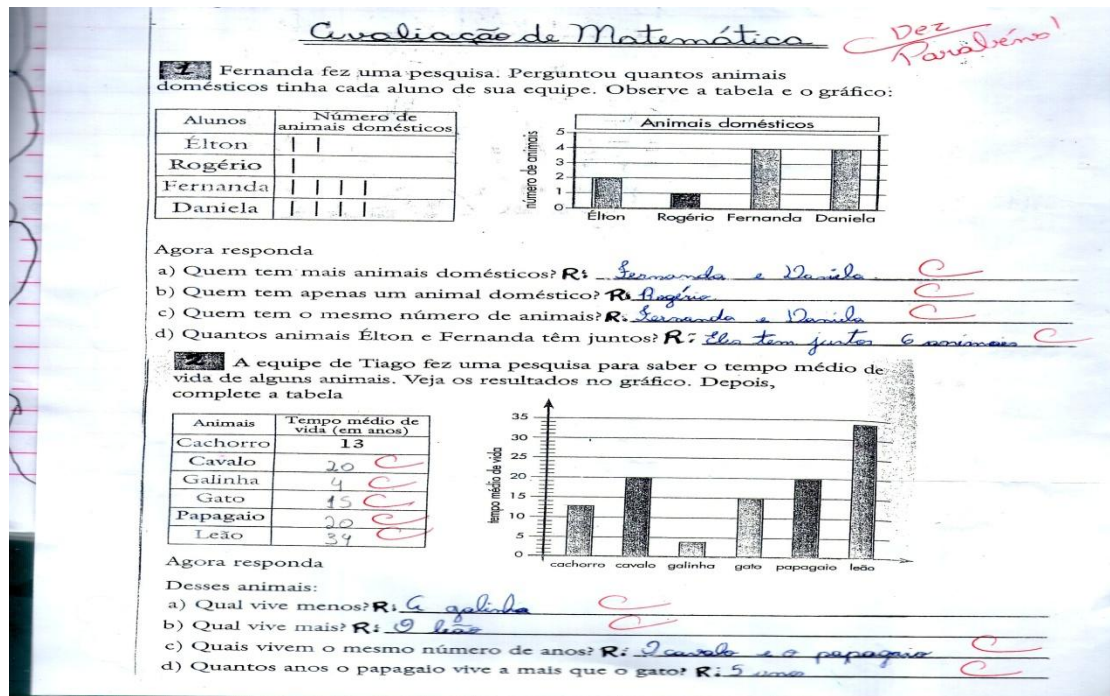 Avaliação de Matemática Dez
Parabéns!
1 Fernanda fez uma pesquisa. Perguntou quantos animais
domésticos tinha cada aluno de sua equipe. Observe a tabela e o gráfico:
Alunos Número de animais domésticos
Élton | |
Rogério |
Fernanda | | | |
Daniela | | | |
Animais domésticos
número de animais
5
4
3
2
1
0
Élton Rogério Fernanda Daniela
Agora responda
a) Quem tem mais animais domésticos? R: Fernanda e Daniela. C
b) Quem tem apenas um animal doméstico? R: Rogério. C
c) Quem tem o mesmo número de animais? R: Fernanda e Daniela C
d) Quantos animais Élton e Fernanda têm juntos? R: Eles tem juntos 6 animais C
2 A equipe de Tiago fez uma pesquisa para saber o tempo médio de
vida de alguns animais. Veja os resultados no gráfico. Depois,
complete a tabela
Animais Tempo médio de vida (em anos)
Cachorro 13
Cavalo 20 C
Galinha 4 C
Gato 15 C
Papagaio 20 C
Leão 34 C
tempo médio de vida
35
30
25
20
15
10
5
0
cachorro cavalo galinha gato papagaio leão
Agora responda
Desses animais:
a) Qual vive menos? R: A galinha C
b) Qual vive mais? R: O leão C
c) Quais vivem o mesmo número de anos? R: O cavalo e o papagaio C
d) Quantos anos o papagaio vive a mais que o gato? R: 5 anos C